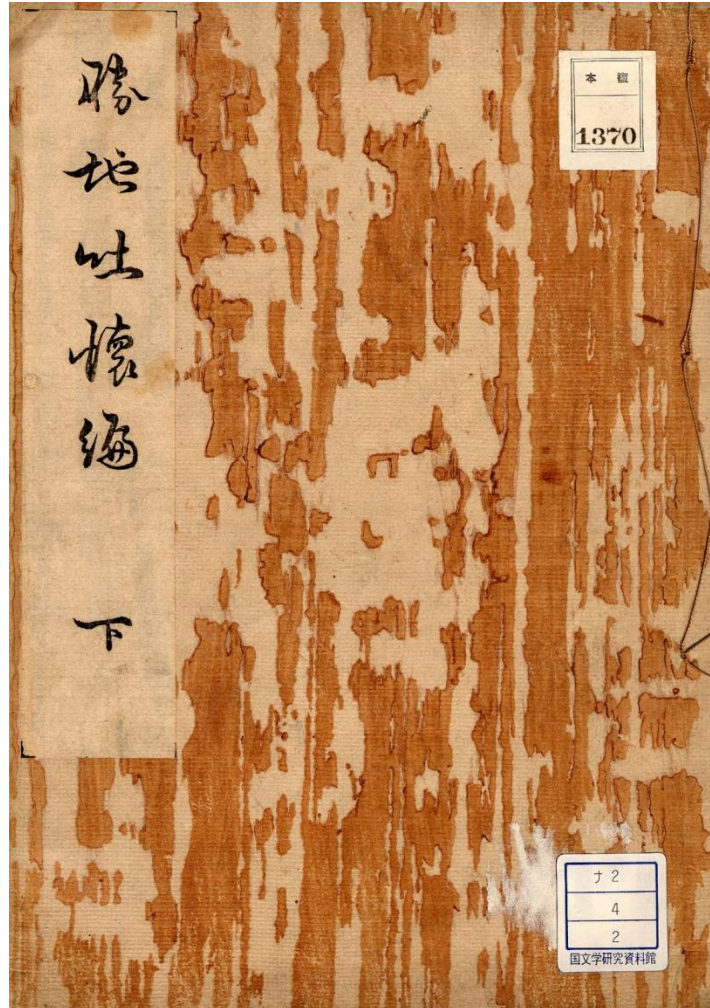 勝地吐懐編 下
本 複
1370
ナ2
4
2
国文学研究資料館